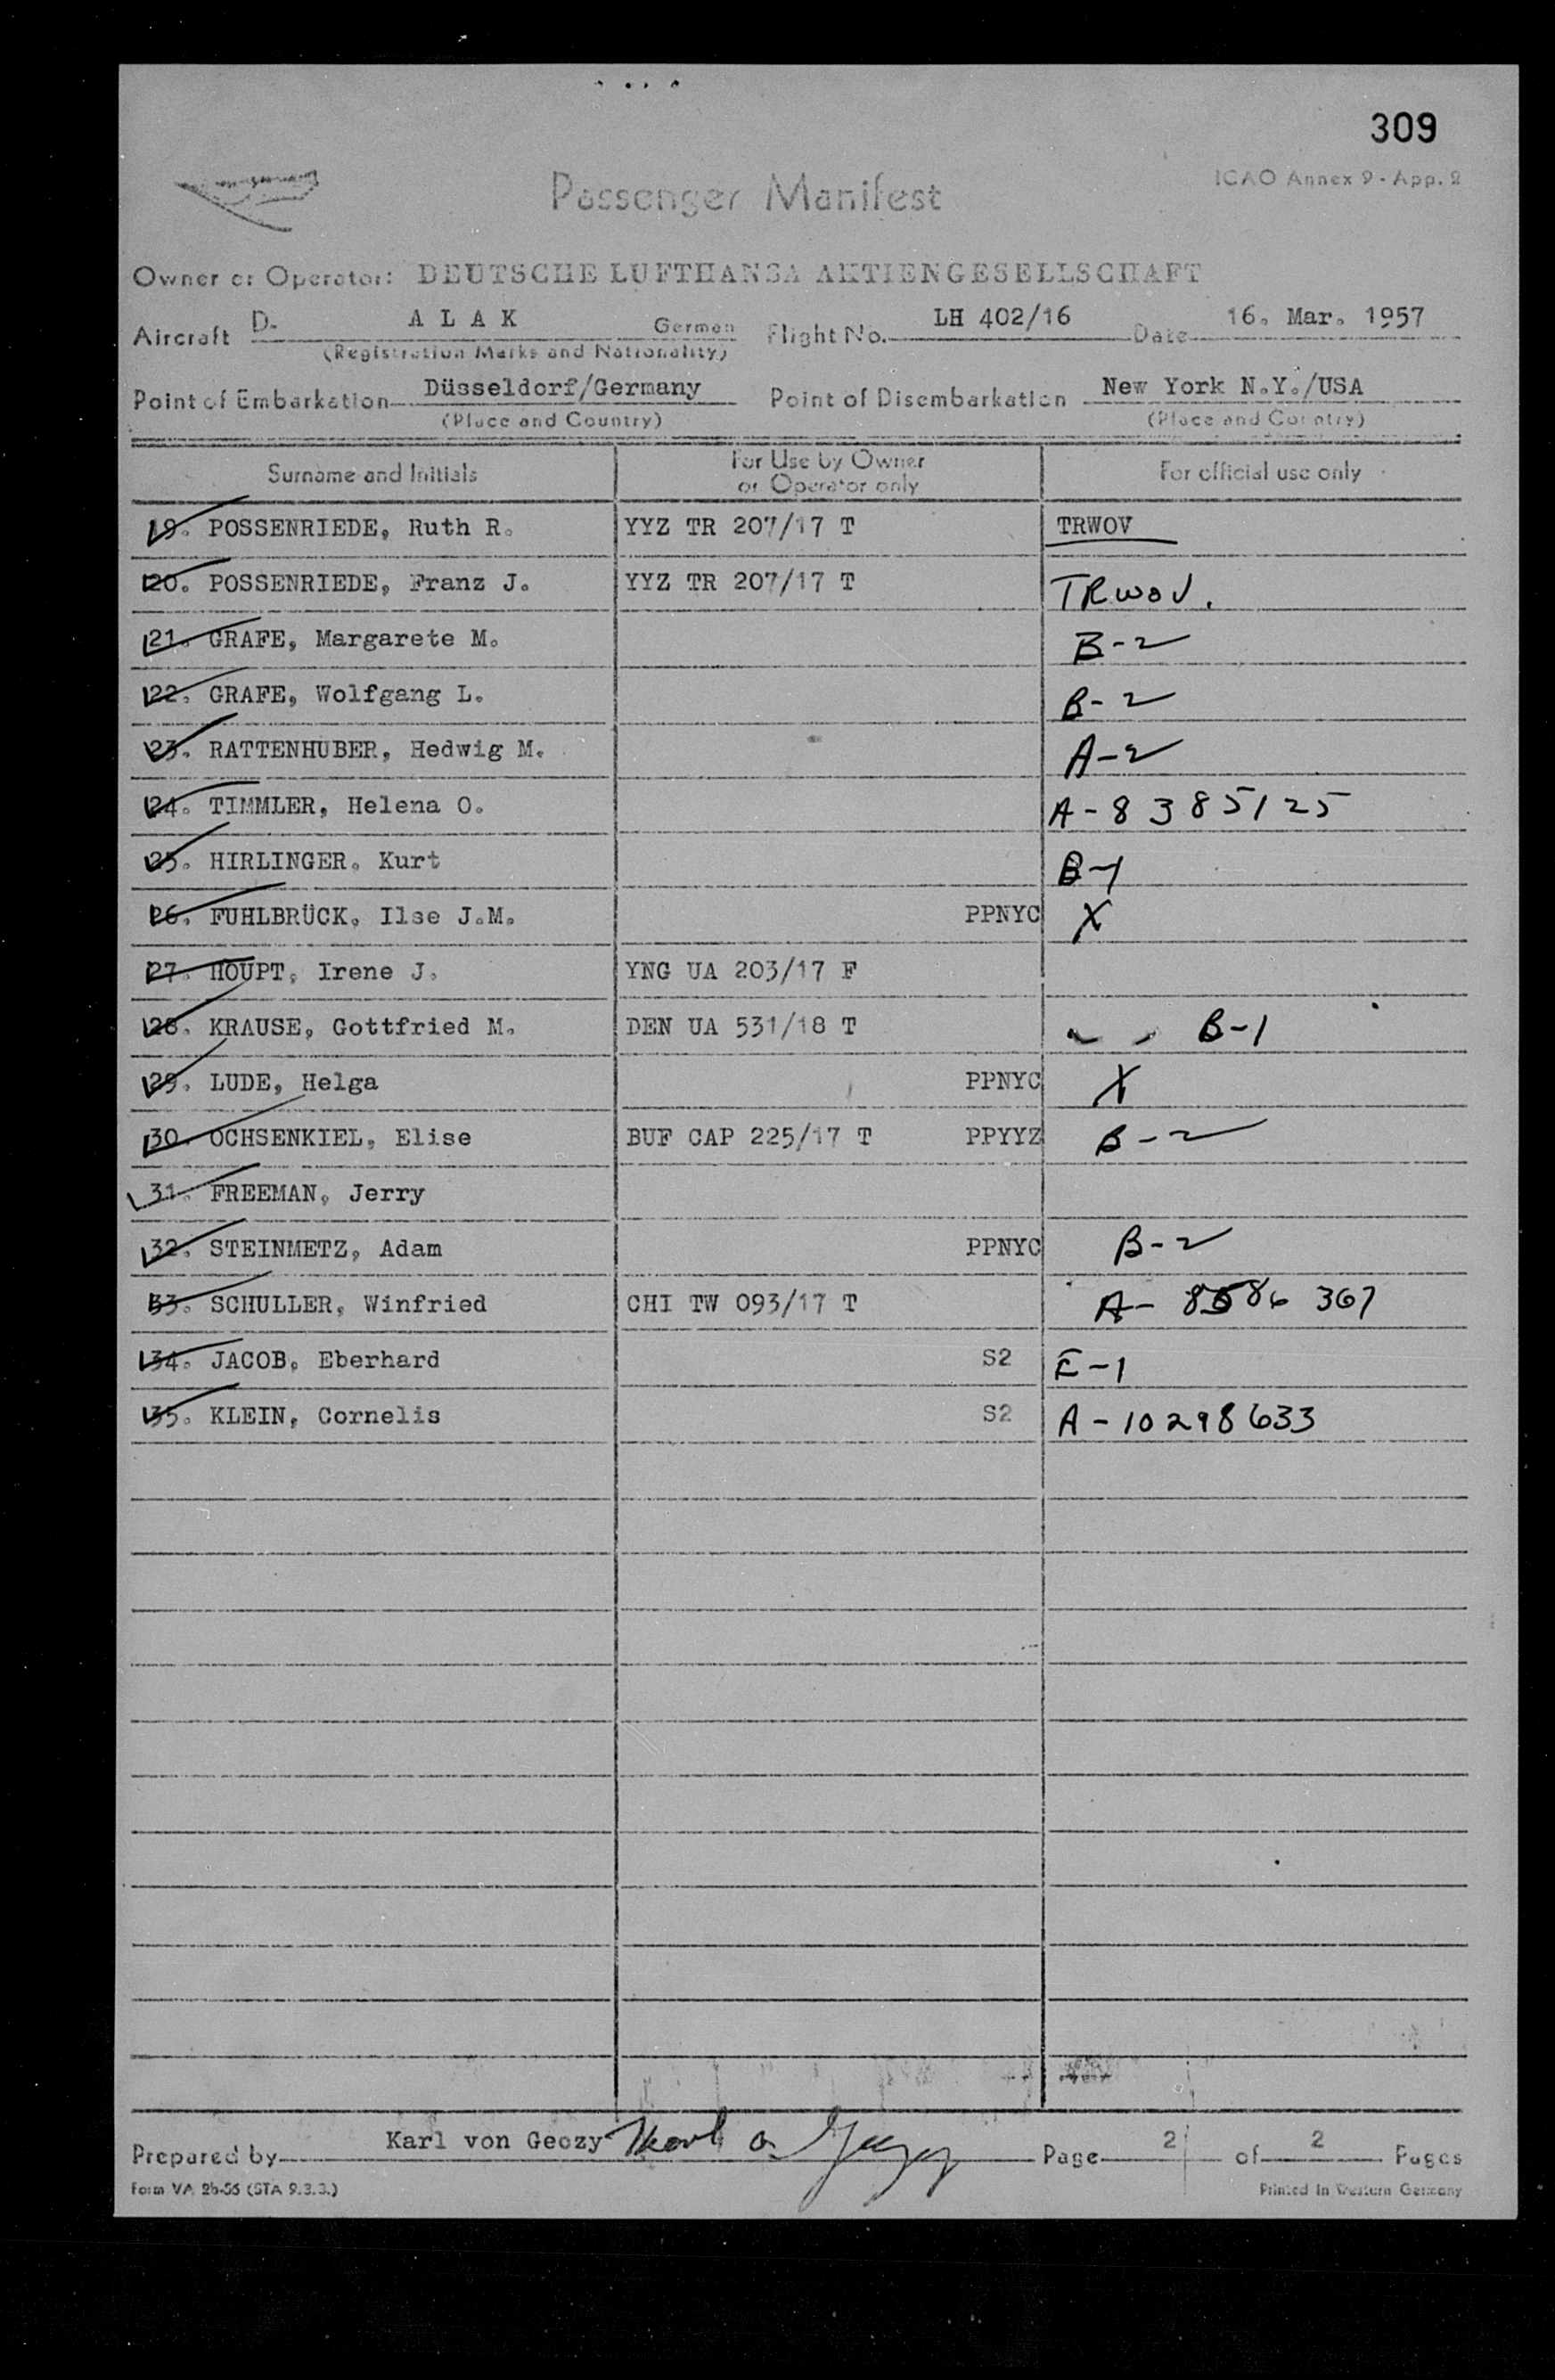 309
Passenger Manifest
ICAO Annex 9 - App. 2
Owner or Operator: DEUTSCHE LUFTHANSA AKTIENGESELLSCHAFT
Aircraft D- A L A K German Flight No. LH 402/16 Date 16. Mar. 1957
(Registration Marks and Nationality)
Point of Embarkation Düsseldorf/Germany Point of Disembarkation New York N.Y./USA
(Place and Country) (Place and Country)
Surname and Initials For Use by Owner or Operator only For official use only
19. POSSENRIEDE, Ruth R. YYZ TR 207/17 T TRWOV
20. POSSENRIEDE, Franz J. YYZ TR 207/17 T TRWOV.
21. GRAFE, Margarete M. B-2
22. GRAFE, Wolfgang L. B-2
23. RATTENHUBER, Hedwig M. A-2
24. TIMMLER, Helena O. A-8385125
25. HIRLINGER, Kurt B-1
26. FUHLBRÜCK, Ilse J.M. PPNYC X
27. HOUPT, Irene J. YNG UA 203/17 F
28. KRAUSE, Gottfried M. DEN UA 531/18 T B-1
29. LUDE, Helga PPNYC X
30. OCHSENKIEL, Elise BUF CAP 225/17 T PPYYZ B-2
31. FREEMAN, Jerry
32. STEINMETZ, Adam PPNYC B-2
33. SCHULLER, Winfried CHI TW 093/17 T A-
34. JACOB, Eberhard S2 E-1
35. KLEIN, Cornelis S2 A-10298633
Prepared by Karl von Geczy Karl v. Geczy Page 2 of 2 Pages
Form VA 2b-56 (STA 9.3.3.) Printed in Western Germany